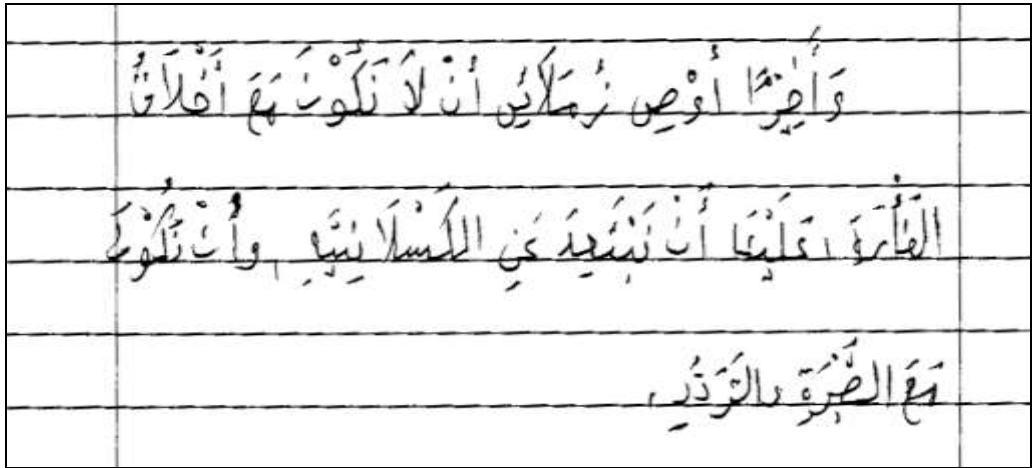 وَأَخِرًا أَوْصِ زُمَلَائِي أَنْ لَا نَكُوْنَ مَعَ أَخْلَاقُ
الفَأْرَةِ ، عَلَيْنَا أَنْ نَبْتَعِدَ عَنِ الكَسْلَانِيَّةِ ، وأَنْ نَكُوْنَ
مَعَ الصَّبْرَةِ